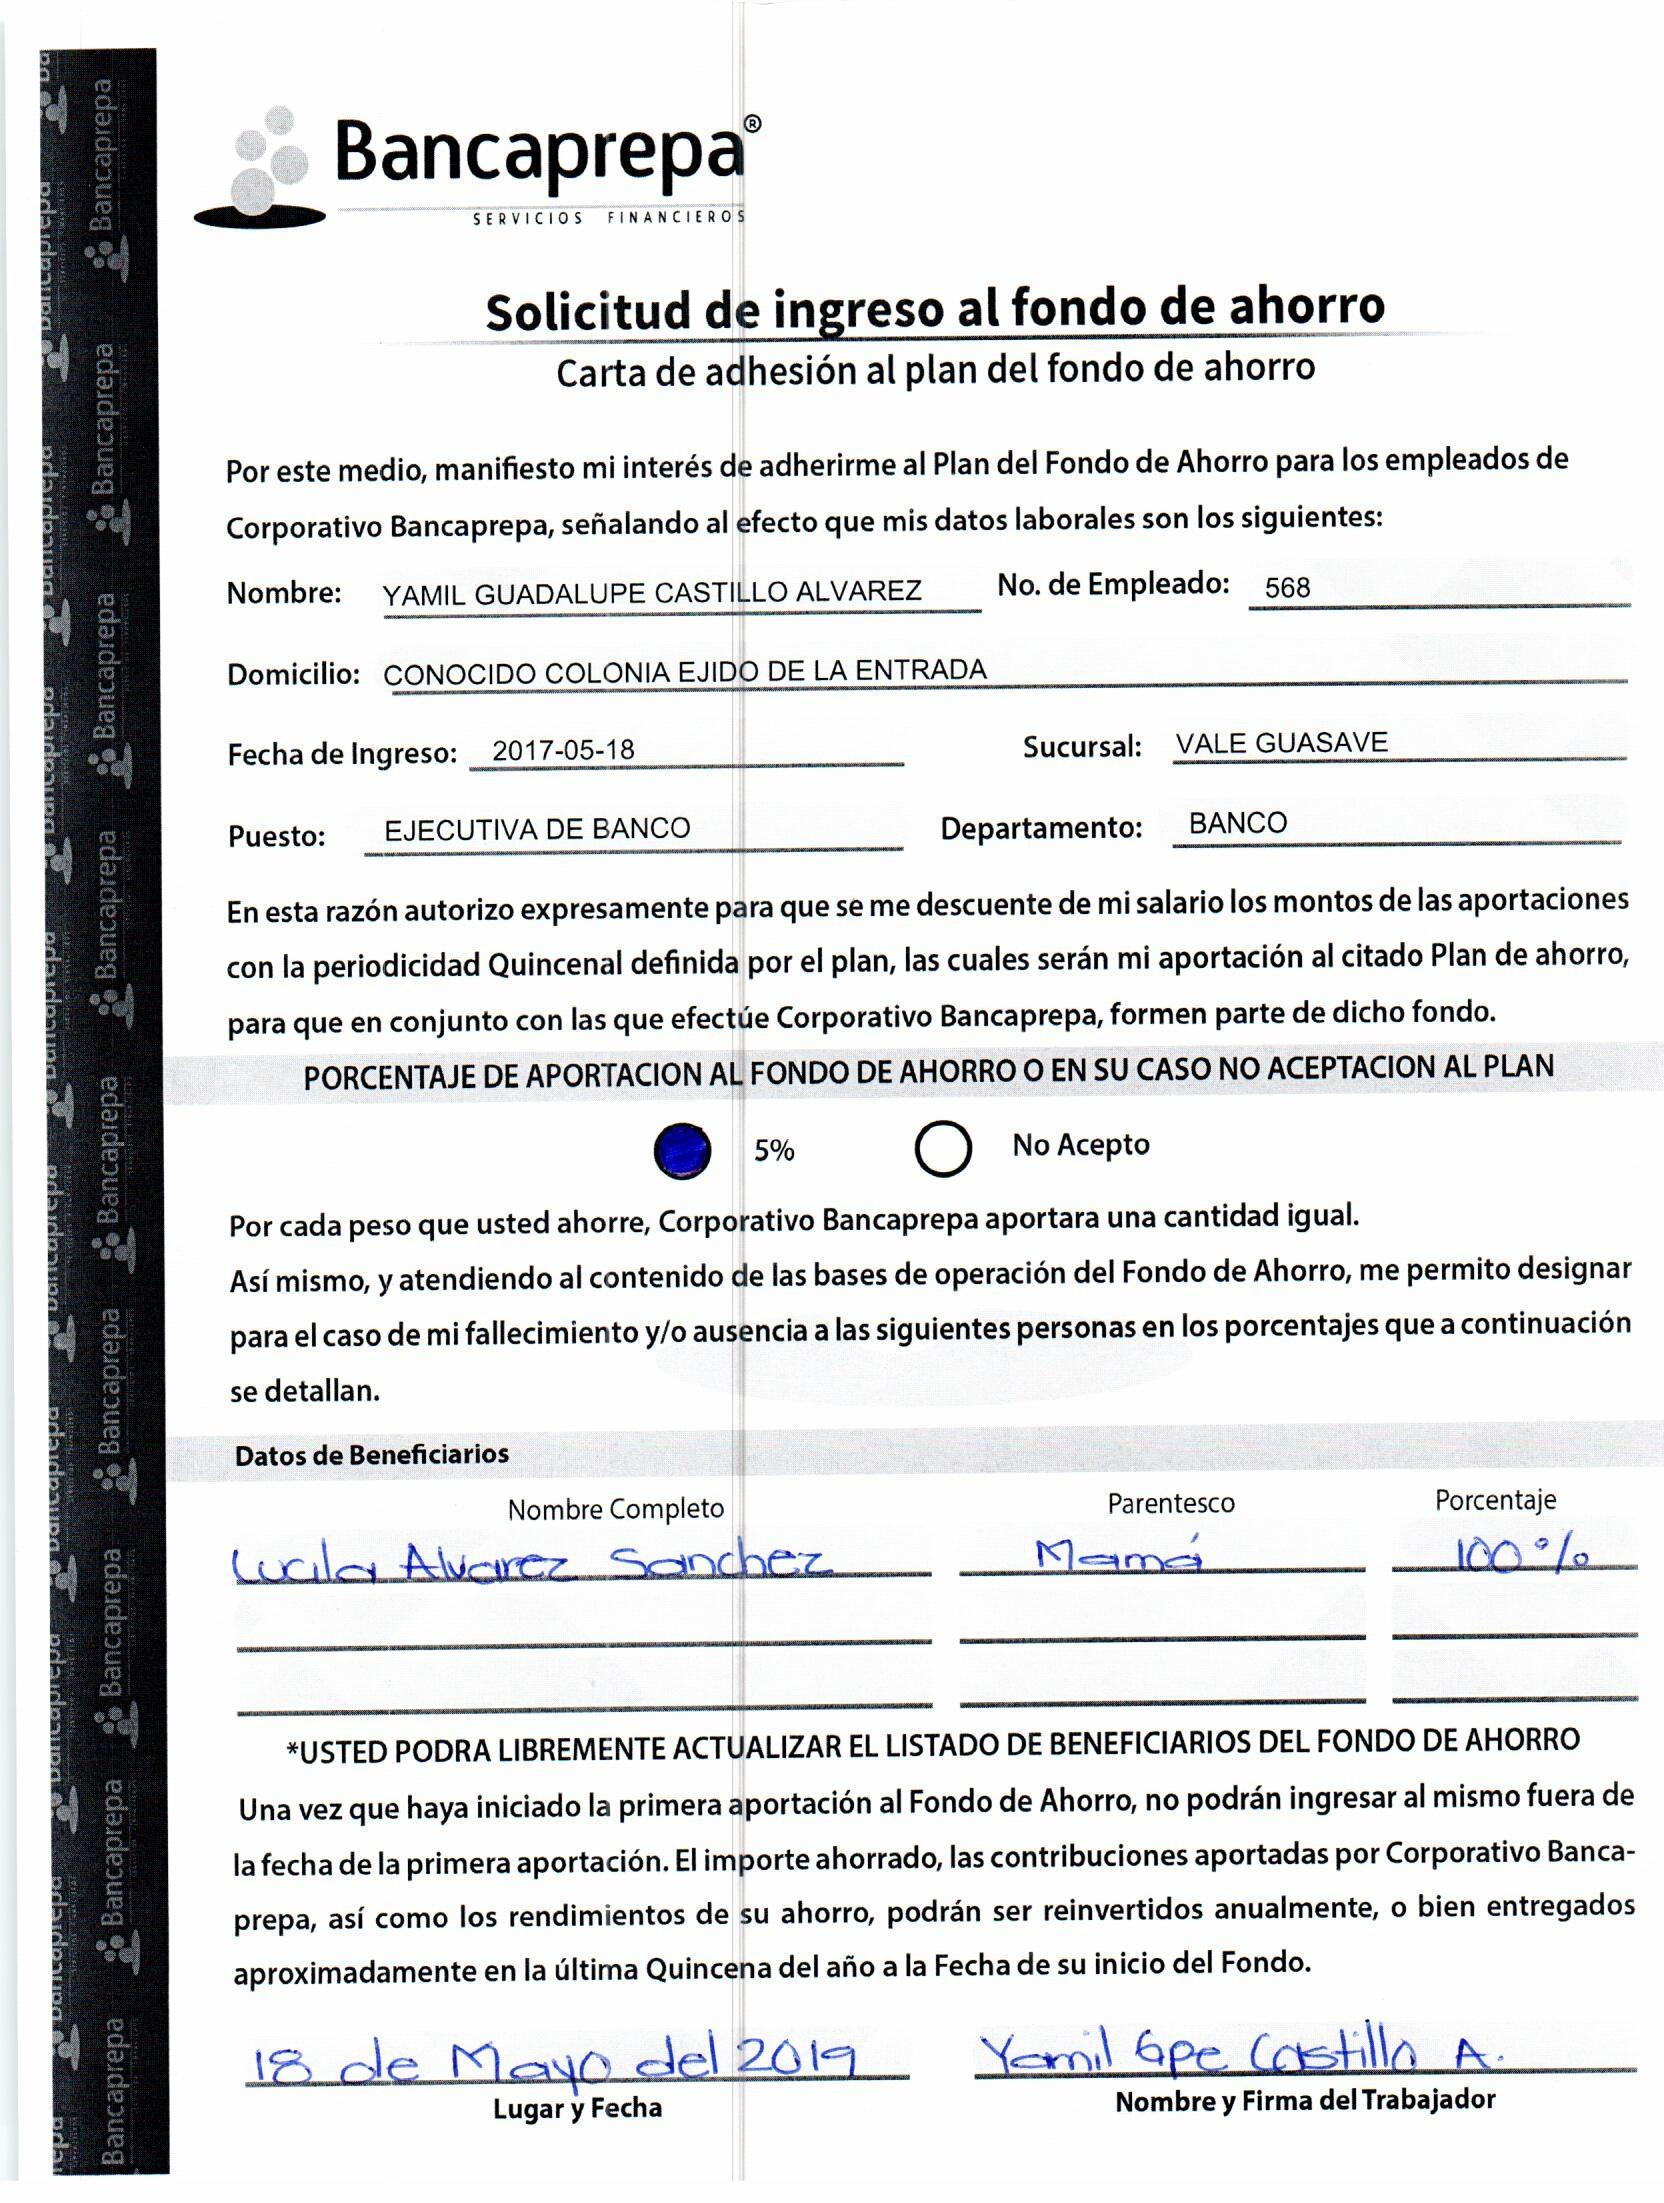 Bancaprepa®
SERVICIOS FINANCIEROS
Solicitud de ingreso al fondo de ahorro
Carta de adhesión al plan del fondo de ahorro
Por este medio, manifiesto mi interés de adherirme al Plan del Fondo de Ahorro para los empleados de
Corporativo Bancaprepa, señalando al efecto que mis datos laborales son los siguientes:
Nombre: YAMIL GUADALUPE CASTILLO ALVAREZ No. de Empleado: 568
Domicilio: CONOCIDO COLONIA EJIDO DE LA ENTRADA
Fecha de Ingreso: 2017-05-18 Sucursal: VALE GUASAVE
Puesto: EJECUTIVA DE BANCO Departamento: BANCO
En esta razón autorizo expresamente para que se me descuente de mi salario los montos de las aportaciones
con la periodicidad Quincenal definida por el plan, las cuales serán mi aportación al citado Plan de ahorro,
para que en conjunto con las que efectúe Corporativo Bancaprepa, formen parte de dicho fondo.
PORCENTAJE DE APORTACION AL FONDO DE AHORRO O EN SU CASO NO ACEPTACION AL PLAN
5% No Acepto
Por cada peso que usted ahorre, Corporativo Bancaprepa aportara una cantidad igual.
Así mismo, y atendiendo al contenido de las bases de operación del Fondo de Ahorro, me permito designar
para el caso de mi fallecimiento y/o ausencia a las siguientes personas en los porcentajes que a continuación
se detallan.
Datos de Beneficiarios
Nombre Completo Parentesco Porcentaje
Lucila Alvarez Sanchez Mamá 100%
*USTED PODRA LIBREMENTE ACTUALIZAR EL LISTADO DE BENEFICIARIOS DEL FONDO DE AHORRO
Una vez que haya iniciado la primera aportación al Fondo de Ahorro, no podrán ingresar al mismo fuera de
la fecha de la primera aportación. El importe ahorrado, las contribuciones aportadas por Corporativo Banca-
prepa, así como los rendimientos de su ahorro, podrán ser reinvertidos anualmente, o bien entregados
aproximadamente en la última Quincena del año a la Fecha de su inicio del Fondo.
18 de Mayo del 2019 Yamil Gpe Castillo A.
Lugar y Fecha Nombre y Firma del Trabajador